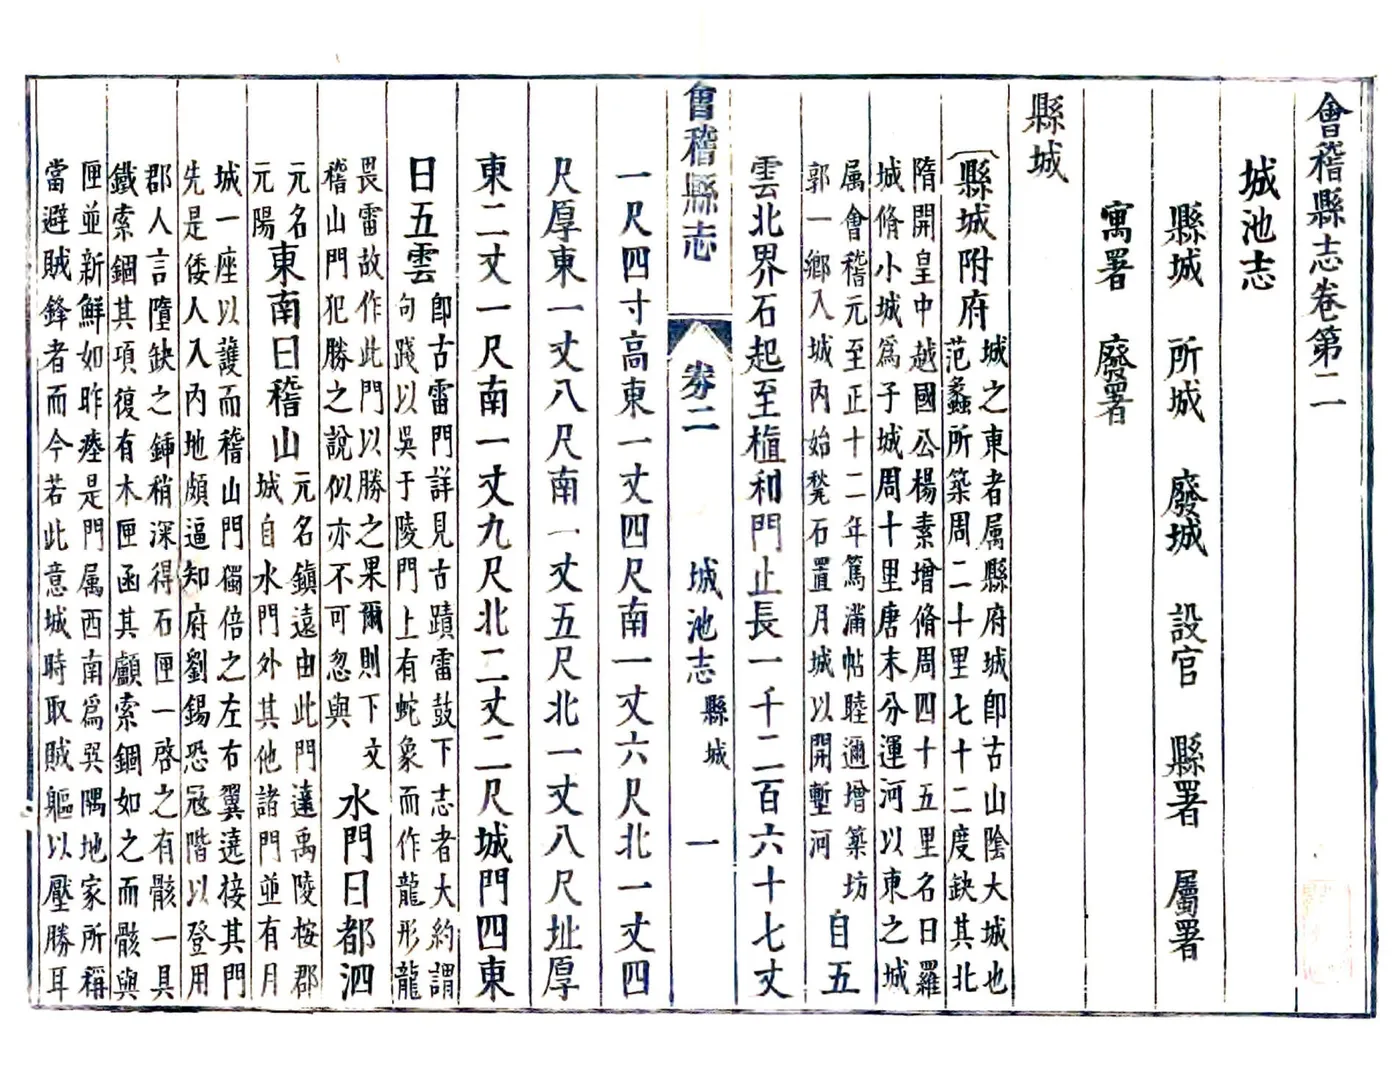 會稽縣志卷第二
城池志
縣城 所城 廢城 設官 縣署 屬署
寓署 廢署
縣城
縣城附府
城之東者属縣府城即古山陰大城也
范蠡所築周二十里七十二度缺其北
隋開皇中越國公楊素增脩周四十五里名曰羅
城脩小城爲子城周十里唐末分運河以東之城
属會稽元至正十二年篤滿帖睦邇增築坊
郭一鄉入城内始甃石置月城以開塹河
自五
雲北界石起至植利門止長一千二百六十七丈
會稽縣志 卷二 城池志 縣城 一
一尺四寸高東一丈四尺南一丈六尺北一丈四
尺厚東一丈八尺南一丈五尺北一丈八尺址厚
東二丈一尺南一丈九尺北二丈二尺城門四東
曰五雲
即古雷門詳見古蹟雷鼓下志者大約謂
句踐以吳于陵門上有蛇象而作龍形龍
畏雷故作此門以勝之果爾則下文
稽山門犯勝之說似亦不可忽與
水門曰都泗
元名
元陽
東南曰稽山
元名鎮遠由此門達禹陵桉郡
城自水門外其他諸門並有月
城一座以護而稽山門獨倍之左右翼遶接其門
先是倭人入内地頗逼知府劉錫恐冦階以登用
郡人言墮缺之鍤稍深得石匣一啓之有骸一具
鐵索錮其項復有木匣函其顱索錮如之而骸與
匣並新鮮如昨瘞是門属西南爲巽隅地家所稱
當避賊鋒者而今若此意城時取賊軀以壓勝耳